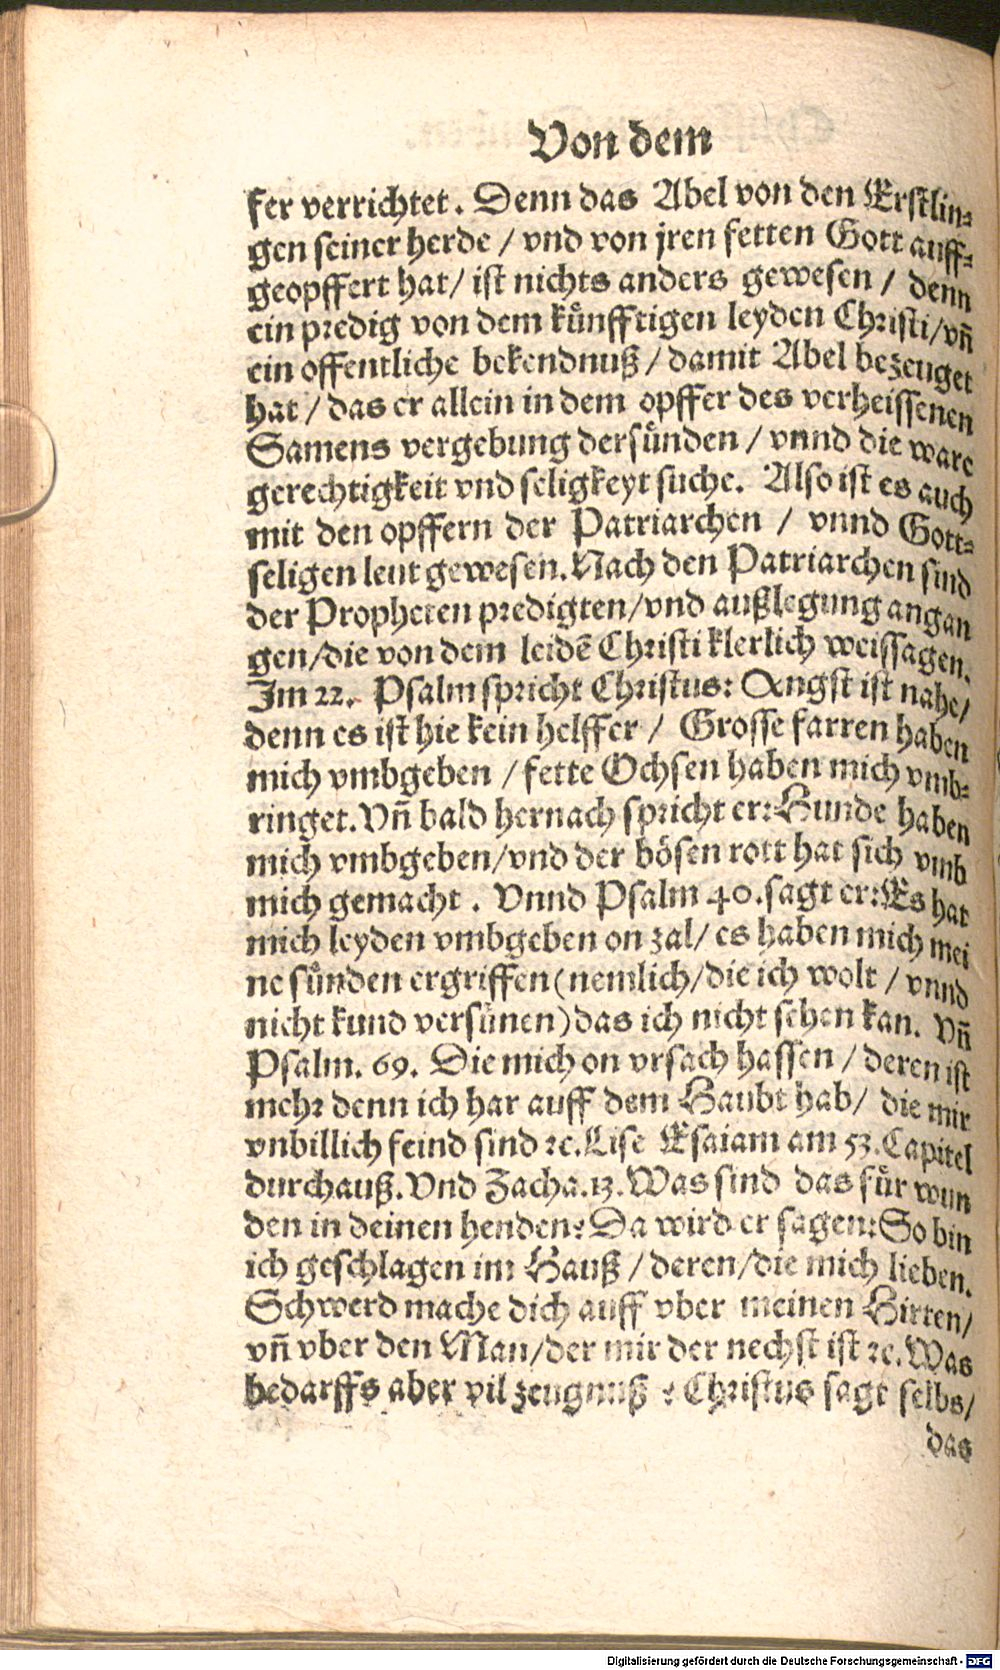 Von dem
fer verrichtet. Denn das Abel von den Erstlin⸗
gen seiner herde / vnd von jren fetten Gott auff⸗
geopffert hat / ist nichts anders gewesen / denn
ein predig von dem künfftigen leyden Christi / vñ
ein offentliche bekendnuß / damit Abel bezeuget
hat / das er allein in dem opffer des verheissenen
Samens vergebung der sünden / vnnd die ware
gerechtigkeit vnd seligkeyt suche. Also ist es auch
mit den opffern der Patriarchen / vnnd Gott⸗
seligen leut gewesen. Nach den Patriarchen sind
der Propheten predigten / vnd außlegung angan
gen / die von dem leidē Christi klerlich weissagen.
Im 22. Psalm spricht Christus: Angst ist nahe /
denn es ist hie kein helffer / Grosse farren haben
mich vmbgeben / fette Ochsen haben mich vmb⸗
ringet. Vñ bald hernach spricht er: Hunde haben
mich vmbgeben / vnd der bösen rott hat sich vmb
mich gemacht. Vnnd Psalm 40. sagt er: Es hat
mich leyden vmbgeben on zal / es haben mich mei
ne sünden ergriffen (nemlich / die ich wolt / vnnd
nicht kund versünen) das ich nicht sehen kan. Vñ
Psalm. 69. Die mich on vrsach hassen / deren ist
mehr denn ich har auff dem Haubt hab / die mir
vnbillich feind sind ꝛc. Lise Esaiam am 53. Capitel
durchauß. Vnd Zacha. 13. Was sind das für wun
den in deinen henden? Da wird er sagen: So bin
ich geschlagen im Hauß / deren / die mich lieben.
Schwerd mache dich auff vber meinen Hirten /
vñ vber den Man / der mir der nechst ist ꝛc. Was
bedarffs aber vil zeugnuß? Christus sagt selbs /
das
Digitalisierung gefördert durch die Deutsche Forschungsgemeinschaft - DFG